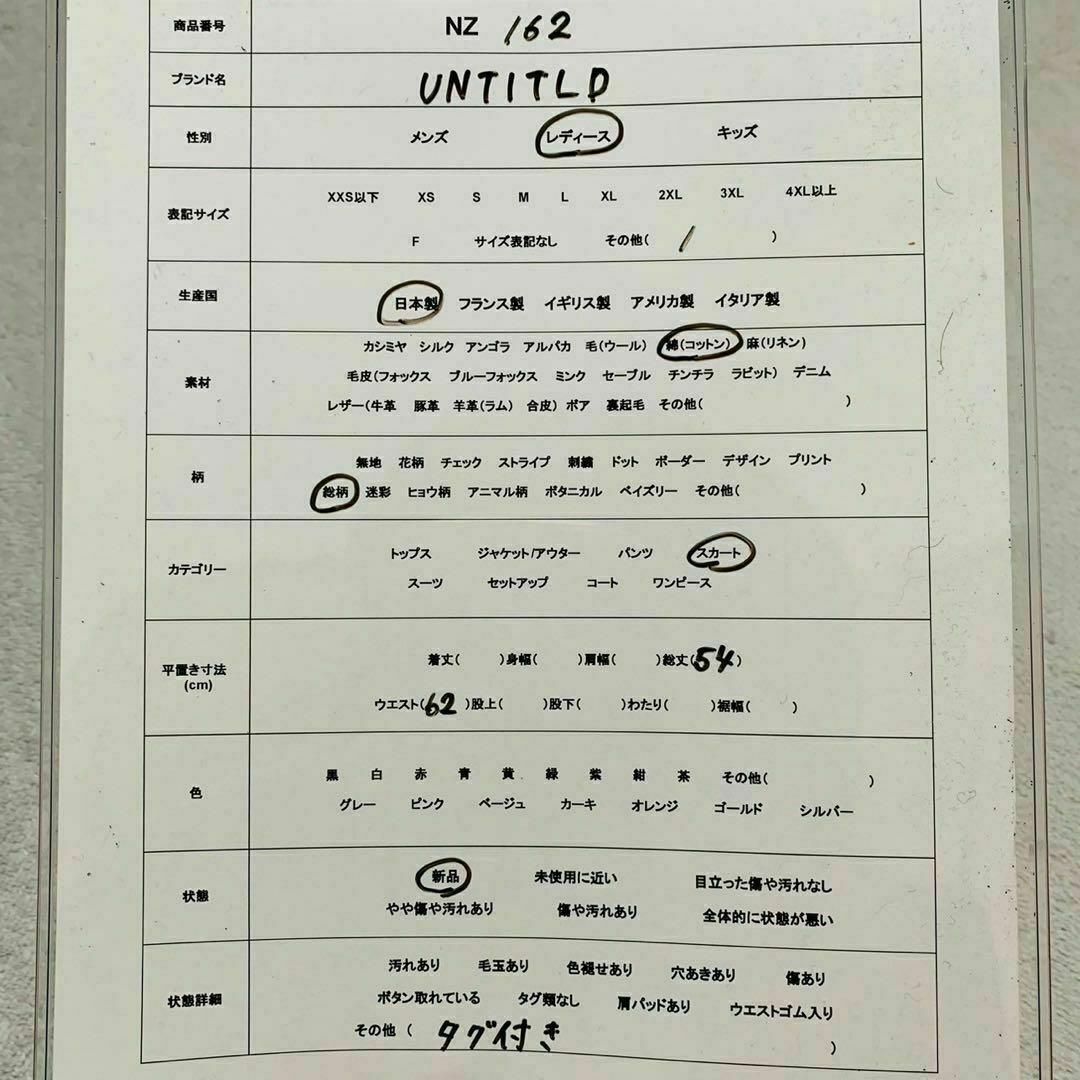 商品番号 NZ 162
ブランド名 UNTITLD
性別 メンズ レディース キッズ
XXS以下 XS S M L XL 2XL 3XL 4XL以上
表記サイズ
F サイズ表記なし その他( / )
生産国 日本製 フランス製 イギリス製 アメリカ製 イタリア製
カシミヤ シルク アンゴラ アルパカ 毛(ウール) 綿(コットン) 麻(リネン)
素材 毛皮(フォックス ブルーフォックス ミンク セーブル チンチラ ラビット) デニム
レザー(牛革 豚革 羊革(ラム) 合皮) ボア 裏起毛 その他( )
無地 花柄 チェック ストライプ 刺繍 ドット ボーダー デザイン プリント
柄
総柄 迷彩 ヒョウ柄 アニマル柄 ボタニカル ペイズリー その他( )
トップス ジャケット/アウター パンツ スカート
カテゴリー
スーツ セットアップ コート ワンピース
着丈( )身幅( )肩幅( )総丈(54)
平置き寸法
(cm)
ウエスト(62)股上( )股下( )わたり( )裾幅( )
黒 白 赤 青 黄 緑 紫 紺 茶 その他( )
色
グレー ピンク ベージュ カーキ オレンジ ゴールド シルバー
新品 未使用に近い 目立った傷や汚れなし
状態
やや傷や汚れあり 傷や汚れあり 全体的に状態が悪い
汚れあり 毛玉あり 色褪せあり 穴あきあり 傷あり
状態詳細 ボタン取れている タグ類なし 肩パッドあり ウエストゴム入り
その他 ( タグ付き )